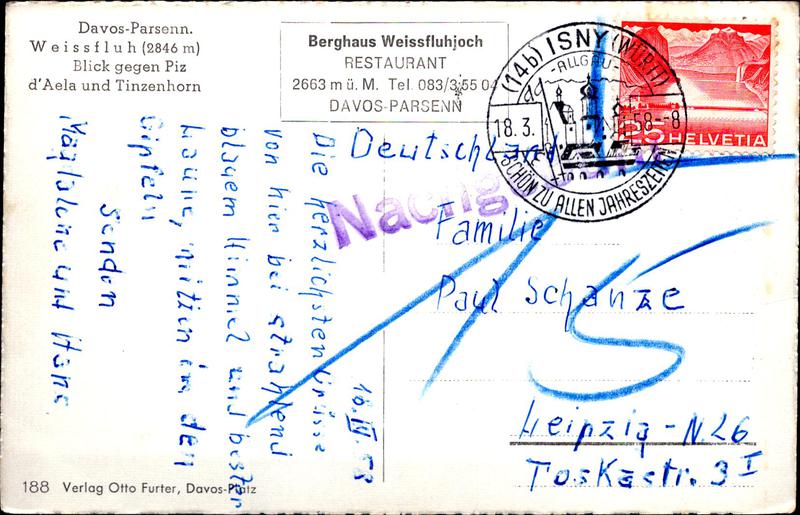 Davos-Parsenn.
Weissfluh (2846 m)
Blick gegen Piz
d'Aela und Tinzenhorn
Berghaus Weissfluhjoch
RESTAURANT
2663 m ü. M. Tel. 083/3 55 04
DAVOS-PARSENN
(14b) ISNY (WÜRTT)
ALLGÄU
18.3.
58-8
SCHÖN ZU ALLEN JAHRESZEITEN
HELVETIA
18. IV. 58
Die herzlichsten Grüsse
von hier bei strahlend
blauem Himmel und bester
Laune, mitten in den
Gipfeln
senden
Magdalene und Hans.
Deutschland
Familie
Paul Schanze
Leipzig - N. 26
Toskastr. 3 I
15
188 Verlag Otto Furter, Davos-Platz